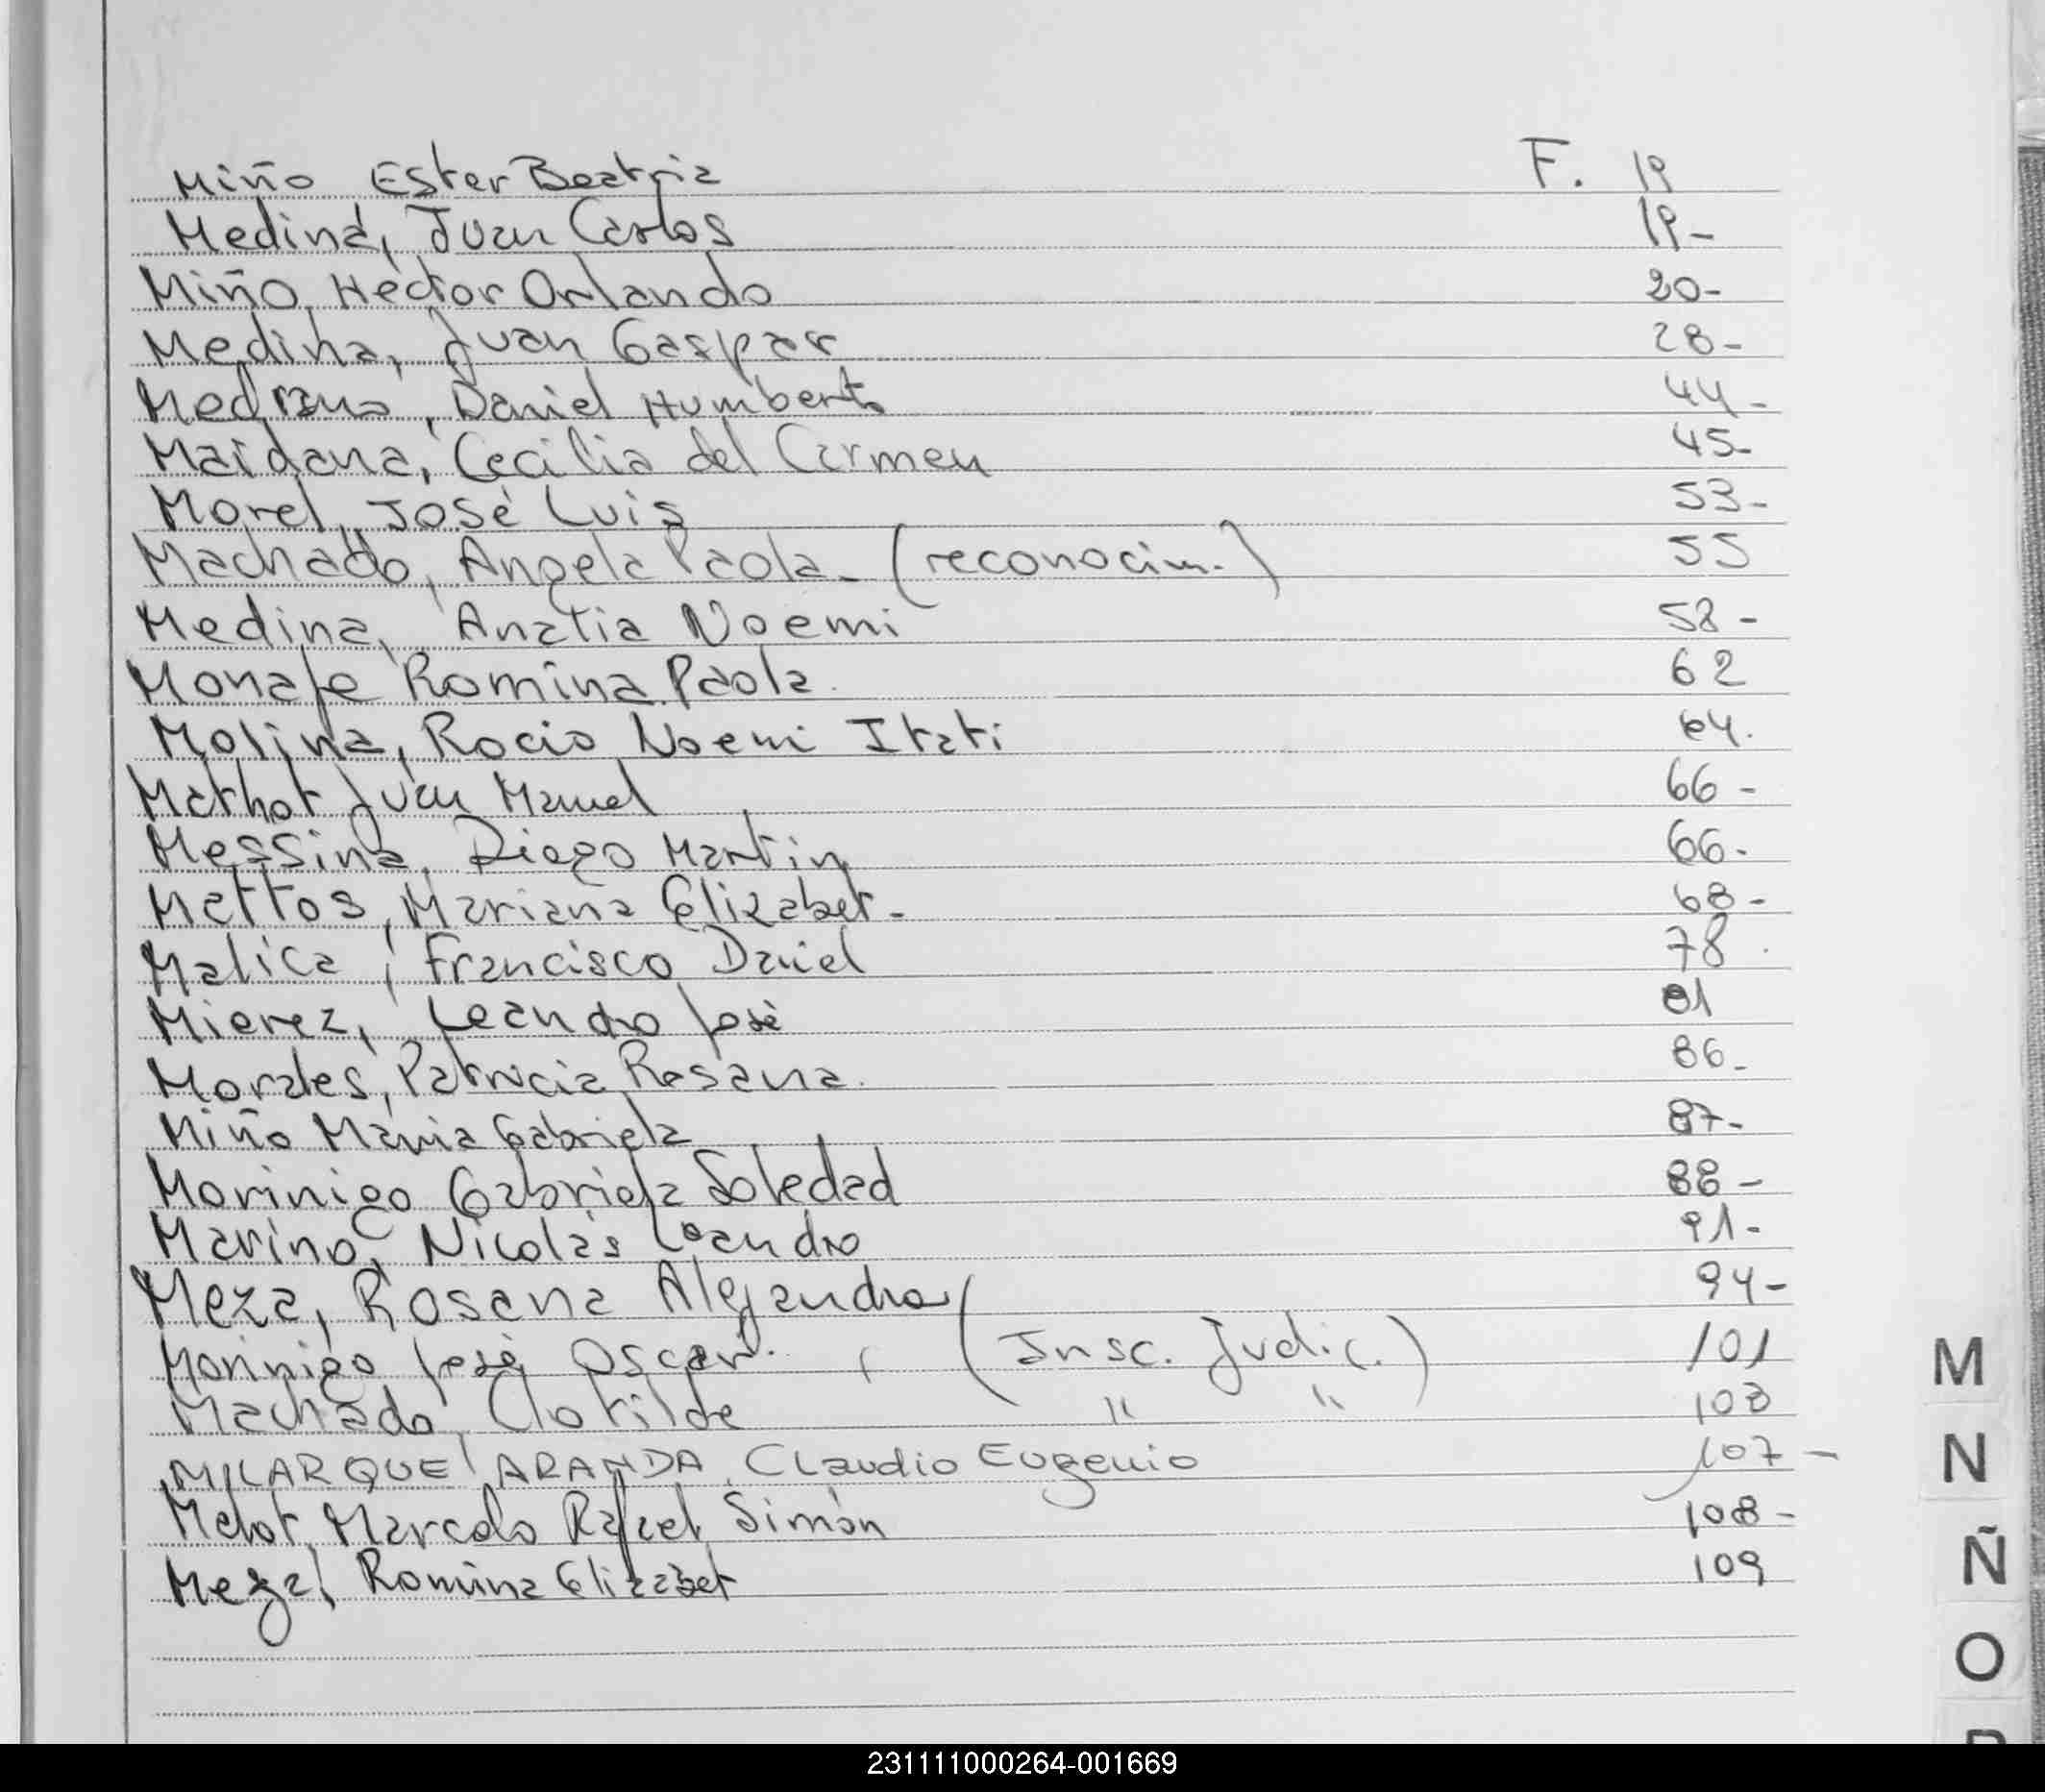 Miño Ester Beatriz F. 19
Medina, Juan Carlos 19-
Miño, Héctor Orlando 20-
Medina, Juan Gaspar 28-
Medrano, Daniel Humberto 44-
Maidana, Cecilia del Carmen 45-
Morel, José Luis 53-
Machado, Angela Paola - (reconocim.) 55
Medina, Analia Noemi 58-
Romina Paola 62
Molina, Rocio Noemi Itati 64.
Mathot Juan Manuel 66-
Messina, Diego Martin 66-
Mattos, Mariana Elizabet- 68-
Malica, Francisco Daniel 78
Mierez, Leandro José 81
Morales, Patricia Rosana. 86-
Miño Maria Gabriela 87-
Morinigo Gabriela Soledad 88-
Marino, Nicolás Leandro 91-
Meza, Rosana Alejandra 94-
Morinigo José Oscar. (Insc. Judic.) 101
Machado, Clotilde " " 103
MILARQUE ARANDA, Claudio Eugenio 107-
Marcelo Rafael Simón 108-
Meza, Romina Elizabet 109
M
N
Ñ
O
231111000264-001669